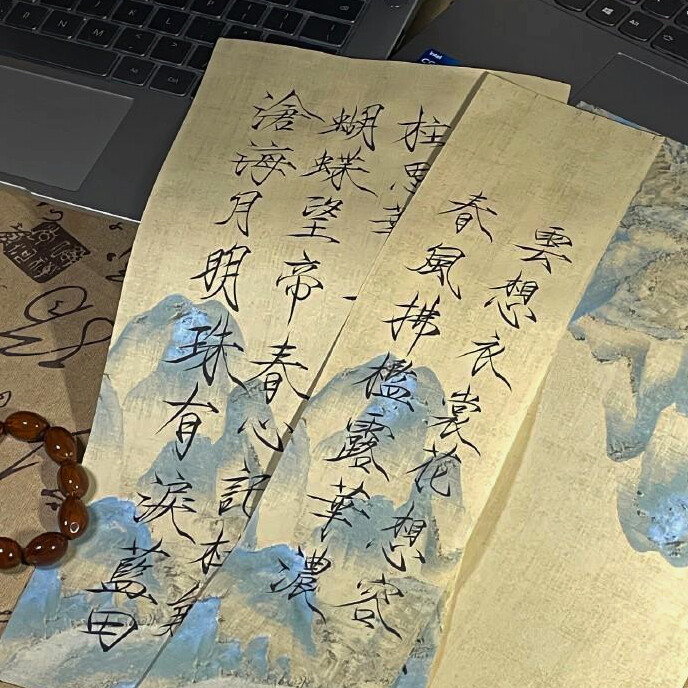 雲想衣裳花想容
春風拂檻露華濃
柱思華
蝴蝶望帝春心記杜
滄海月明珠有淚藍田
intel